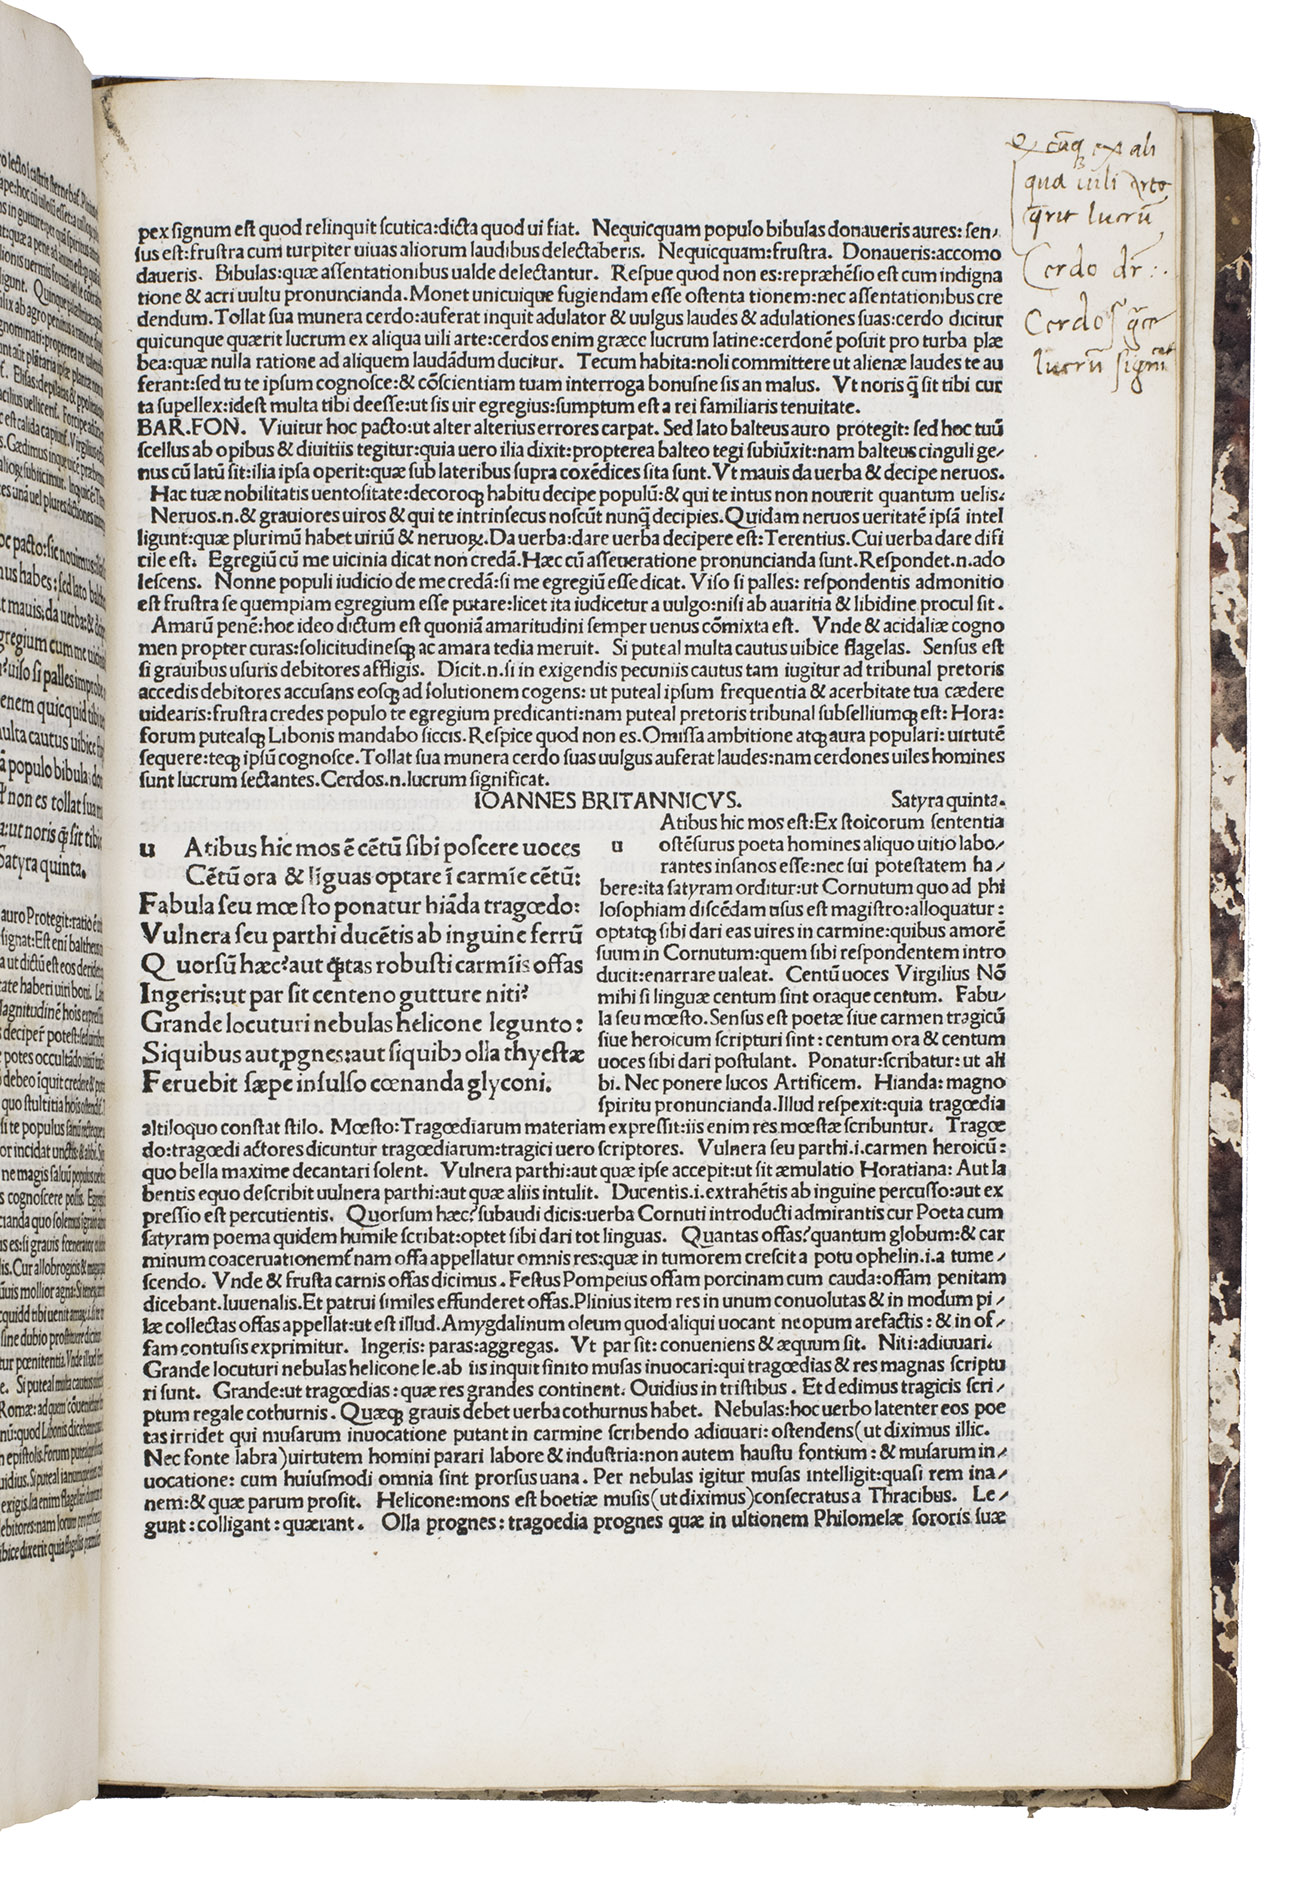 pex signum est quod relinquit scutica:dicta quod ui fiat. Nequicquam populo bibulas donaueris aures: sen/
sus est:frustra cum turpiter uiuas aliorum laudibus delectaberis. Nequicquam:frustra. Donaueris:accomo
daueris. Bibulas:quæ assentationibus ualde delectantur. Respue quod non es:repræhēsio est cum indigna
tione & acri uultu pronuncianda.Monet unicuique fugiendam esse ostenta tionem:nec assentationibus cre
dendum.Tollat sua munera cerdo:auferat inquit adulator & uulgus laudes & adulationes suas:cerdo dicitur
quicunque quærit lucrum ex aliqua uili arte:cerdos enim græce lucrum latine:cerdonē posuit pro turba plæ
bea:quæ nulla ratione ad aliquem laudādum ducitur. Tecum habita:noli committere ut alienæ laudes te au
ferant:sed tu te ipsum cognosce:& cōscientiam tuam interroga bonusne sis an malus. Vt noris ꝙ̄ sit tibi cur
ta supellex:idest multa tibi deesse:ut sis uir egregius:sumptum est a rei familiaris tenuitate.
BAR.FON. Viuitur hoc pacto:ut alter alterius errores carpat. Sed lato balteus auro protegit: sed hoc tuū
scellus ab opibus & diuitiis tegitur:quia uero ilia dixit:propterea balteo tegi subiūxit:nam balteus cinguli ge/
nus cū latū sit:ilia ipsa operit:quæ sub lateribus supra coxēdices sita sunt.Vt mauis da uerba & decipe neruos.
Hac tuæ nobilitatis uentositate:decoroqꝫ habitu decipe populū:& qui te intus non nouerit quantum uelis.
Neruos.n.& grauiores uiros & qui te intrinsecus noscūt nunꝙ̄ decipies.Quidam neruos ueritatē ipsā intel
ligunt:quæ plurimū habet uiriū & neruoꝝ.Da uerba:dare uerba decipere est:Terentius.Cui uerba dare difi
cile est. Egregiū cū me uicinia dicat non credā.Hæc cū asseueratione pronuncianda sunt.Respondet.n.ado
lescens. Nonne populi iudicio de me credā:si me egregiū esse dicat. Viso si palles: respondentis admonitio
est frustra se quempiam egregium esse putare:licet ita iudicetur a uulgo:nisi ab auaritia & libidine procul sit.
Amarū penē:hoc ideo dictum est quoniā amaritudini semper uenus cōmixta est. Vnde & acidaliæ cogno
men propter curas:solicitudinesqꝫ ac amara tedia meruit. Si puteal multa cautus uibice flagelas. Sensus est
si grauibus usuris debitores affligis. Dicit.n.si in exigendis pecuniis cautus tam iugitur ad tribunal pretoris
accedis debitores accusans eosqꝫ ad solutionem cogens: ut puteal ipsum frequentia & acerbitate tua cædere
uidearis:frustra credes populo te egregium predicanti:nam puteal pretoris tribunal subselliumqꝫ est: Hora:
forum putealqꝫ Libonis mandabo siccis.Respice quod non es.Omissa ambitione atqꝫ aura populari: uirtutē
sequere:teqꝫ ipsū cognosce.Tollat sua munera cerdo suas uulgus auferat laudes:nam cerdones uiles homines
sunt lucrum sectantes.Cerdos.n.lucrum significat.
IOANNES BRITANNICVS. Satyra quinta.
u Atibus hic mos ē cētū sibi poscere uoces
Cētū ora & līguas optare ī carmīe cētū:
Fabula seu mœsto ponatur hiāda tragœdo:
Vulnera seu parthi ducētis ab inguine ferrū
Quorsū hæc?aut ꝙ̄tas robusti carmīis offas
Ingeris:ut par sit centeno gutture niti?
Grande locuturi nebulas helicone legunto:
Siquibus aut ꝓgnes:aut siquibꝰ olla thyestæ
Feruebit sæpe insulso cœnanda glyconi.
u Atibus hic mos est:Ex stoicorum sententia
ostēsurus poeta homines aliquo uitio labo/
rantes insanos esse:nec sui potestatem ha/
bere:ita satyram orditur:ut Cornutum quo ad phi
losophiam discēdam usus est magistro:alloquatur:
optatqꝫ sibi dari eas uires in carmine:quibus amorē
suum in Cornutum:quem sibi respondentem intro
ducit:enarrare ualeat. Centū uoces Virgilius Nō
mihi si linguæ centum sint oraque centum. Fabu/
la seu mœsto.Sensus est poetæ siue carmen tragicū
siue heroicum scripturi sint: centum ora & centum
uoces sibi dari postulant. Ponatur:scribatur: ut ali
bi. Nec ponere lucos Artificem. Hianda: magno
spiritu pronuncianda.Illud respexit:quia tragœdia
altiloquo constat stilo. Mœsto:Tragœdiarum materiam expressit:iis enim res mœstæ scribuntur. Tragœ
do:tragœdi actores dicuntur tragœdiarum:tragici uero scriptores. Vulnera seu parthi.i.carmen heroicū:
quo bella maxime decantari solent. Vulnera parthi:aut quæ ipse accepit:ut sit æmulatio Horatiana: Aut la
bentis equo describit uulnera parthi:aut quæ aliis intulit. Ducentis.i.extrahētis ab inguine percusso:aut ex
pressio est percutientis. Quorsum hæc?subaudi dicis:uerba Cornuti introducti admirantis cur Poeta cum
satyram poema quidem humile scribat:optet sibi dari tot linguas. Quantas offas?quantum globum:& car
minum coaceruationem?nam offa appellatur omnis res:quæ in tumorem crescit a potu ophelin.i.a tume/
scendo. Vnde & frusta carnis offas dicimus.Festus Pompeius offam porcinam cum cauda:offam penitam
dicebant.Iuuenalis.Et patrui similes effunderet offas.Plinius item res in unum conuolutas & in modum pi/
læ collectas offas appellat:ut est illud.Amygdalinum oleum quod aliqui uocant neopum arefactis:& in of/
fam contusis exprimitur. Ingeris: paras:aggregas. Vt par sit: conueniens & æquum sit. Niti:adiuuari.
Grande locuturi nebulas helicone le.ab iis inquit sinito musas inuocari:qui tragœdias & res magnas scriptu
ri sunt. Grande:ut tragœdias:quæ res grandes continent. Ouidius in tristibus. Et dedimus tragicis scri/
ptum regale cothurnis. Quæqꝫ grauis debet uerba cothurnus habet. Nebulas:hoc uerbo latenter eos poe
tas irridet qui musarum inuocatione putant in carmine scribendo adiuuari: ostendens(ut diximus illic.
Nec fonte labra)uirtutem homini parari labore & industria:non autem haustu fontium: & musarum in/
uocatione: cum huiusmodi omnia sint prorsus uana. Per nebulas igitur musas intelligit:quasi rem ina/
nem:& quæ parum prosit. Helicone:mons est boetiæ musis(ut diximus)consecratus a Thracibus. Le/
gunt:colligant:quærant. Olla prognes:tragoedia prognes quæ in ultionem Philomelæ sororis suæ
ex ali
qua uili arte
qrit lucrū
Cerdo dr:.
Cerdos
lucrū